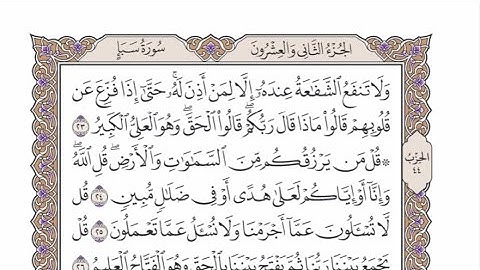 الجزء الثاني والعشرون
سورة سبإ
وَلَا تَنفَعُ ٱلشَّفَٰعَةُ عِندَهُۥٓ إِلَّا لِمَنۡ أَذِنَ لَهُۥۚ حَتَّىٰٓ إِذَا فُزِّعَ عَن
قُلُوبِهِمۡ قَالُواْ مَاذَا قَالَ رَبُّكُمۡۖ قَالُواْ ٱلۡحَقَّۖ وَهُوَ ٱلۡعَلِيُّ ٱلۡكَبِيرُ ٢٣
۞ قُلۡ مَن يَرۡزُقُكُم مِّنَ ٱلسَّمَٰوَٰتِ وَٱلۡأَرۡضِۖ قُلِ ٱللَّهُۖ
وَإِنَّآ أَوۡ إِيَّاكُمۡ لَعَلَىٰ هُدًى أَوۡ فِي ضَلَٰلٖ مُّبِينٖ ٢٤ قُل
لَّا تُسۡـَٔلُونَ عَمَّآ أَجۡرَمۡنَا وَلَا نُسۡـَٔلُ عَمَّا تَعۡمَلُونَ ٢٥ قُلۡ
يَجۡمَعُ بَيۡنَنَا رَبُّنَا ثُمَّ يَفۡتَحُ بَيۡنَنَا بِٱلۡحَقِّ وَهُوَ ٱلۡفَتَّاحُ ٱلۡعَلِيمُ ٢٦
الحزب
٤٤